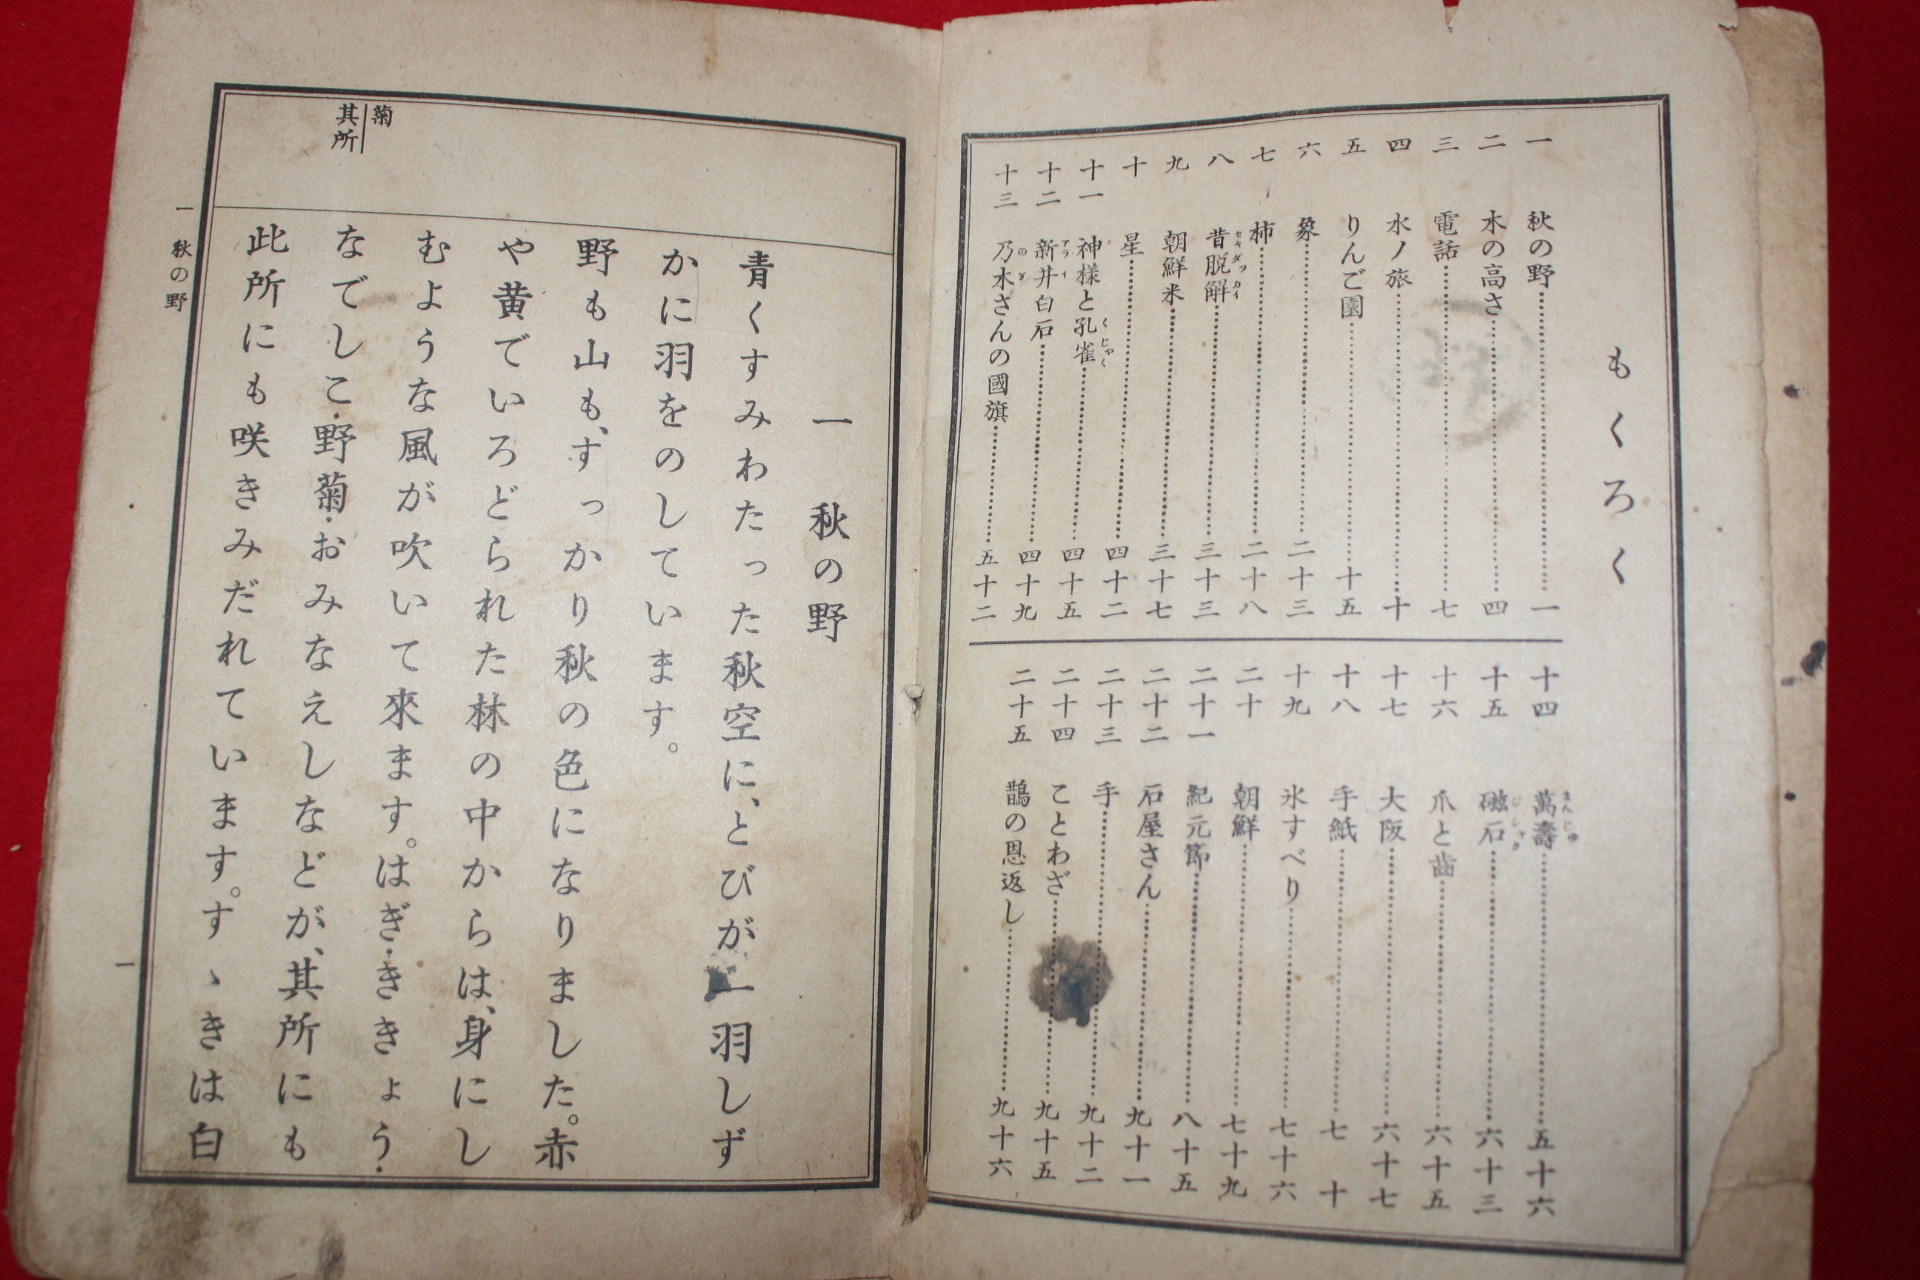 もくろく
一 秋の野 一
二 木の高さ 四
三 電話 七
四 水ノ旅 十
五 りんご園 十五
六 象 二十三
七 柿 二十八
八 昔脱解 三十三
九 朝鮮米 三十七
十 星 四十二
十一 神樣と孔雀 四十五
十二 新井白石 四十九
十三 乃木さんの國旗 五十二
十四 萬壽 五十六
十五 磁石 六十三
十六 爪と齒 六十五
十七 大阪 六十七
十八 手紙 七十
十九 氷すべり 七十六
二十 朝鮮 七十九
二十一 紀元節 八十五
二十二 石屋さん 九十一
二十三 手 九十二
二十四 ことわざ 九十五
二十五 鵲の恩返し 九十六
菊
其所
一 秋の野
青くすみわたった秋空に、とびが一羽しず
かに羽をのしています。
野も山も、すっかり秋の色になりました。赤
や黄でいろどられた林の中からは、身にし
むような風が吹いて來ます。はぎ・ききょう・
なでしこ・野菊・おみなえしなどが、其所にも
此所にも咲きみだれています。すゝきは白
一 秋の野
一